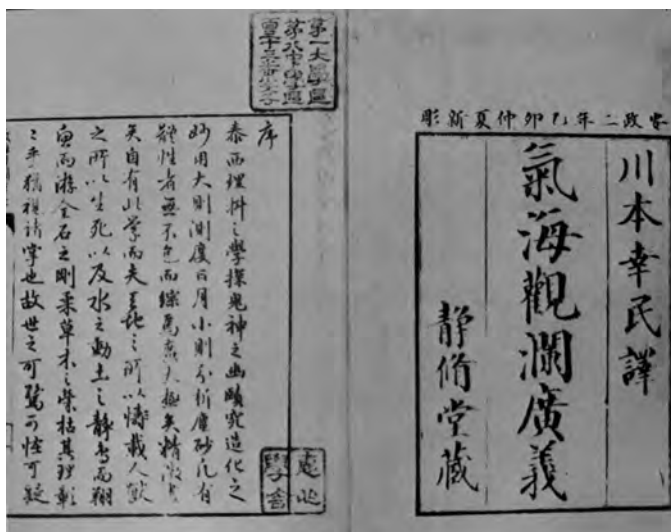 安政二年乙卯仲夏新彫
川本幸民譯
氣海觀瀾廣義
靜脩堂藏
第一大學區
第八中學區
序
泰西理科之學探鬼神之幽賾究造化之
妙用大則測度日月小則分析塵砂凡有
體性者無不包而綜焉意大極矣精微
矣自有此學而夫天地之所以幬載人獸
之所以生死以及水之動土之靜鳥而翔
魚而游金石之剛柔草木之榮枯其理彰
〻乎猶視諸掌也故世之可驚可怪可疑
學舍